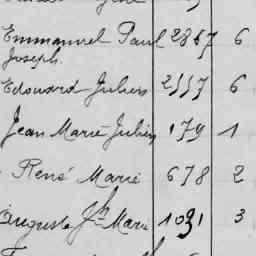 Emmanuel Paul 2867 6
Joseph
Edouard Julien 2557 6
Jean Marie Julien 179 1
René Marie 678 2
Auguste Jh Marie 1031 3